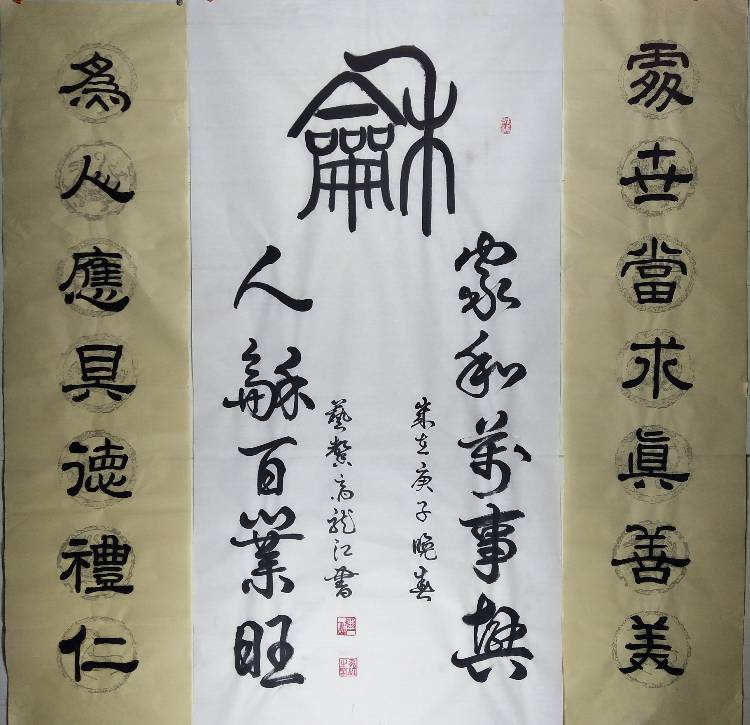 處世當求真善美
龢
家和萬事興
歲在庚子晚春
藝馨高龍江書
人龢百業旺
為人應具德禮仁